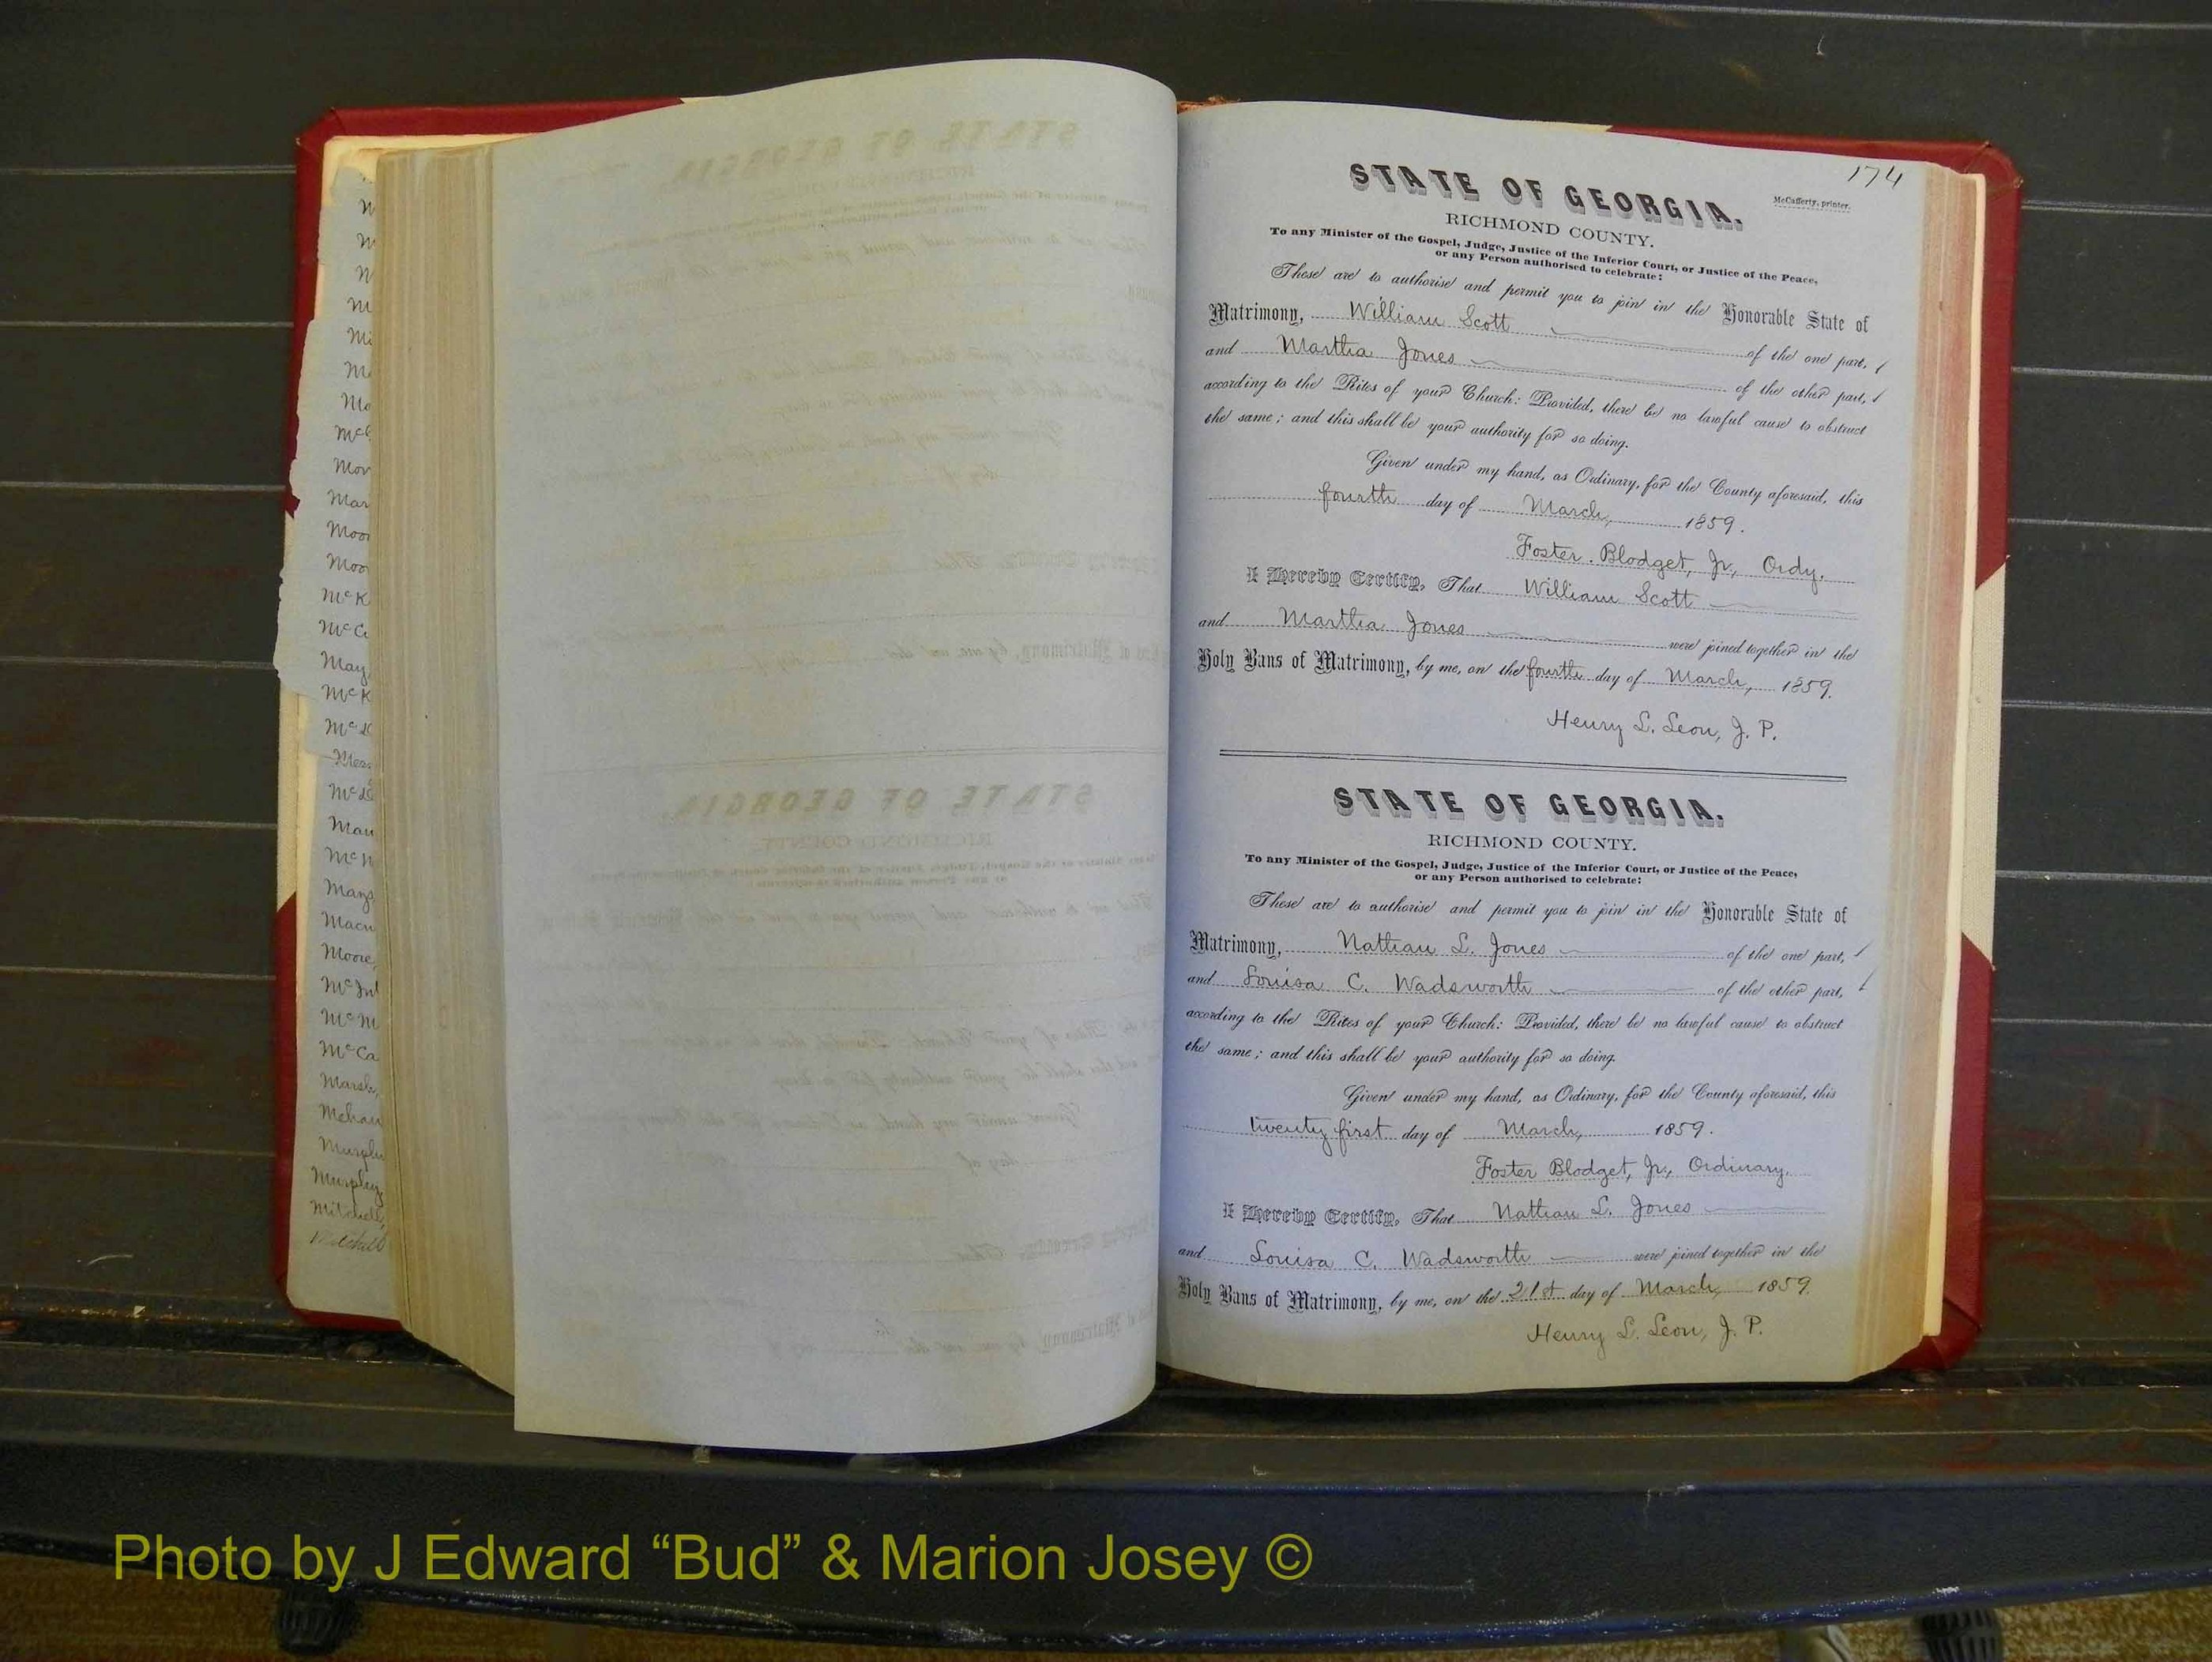 174
STATE OF GEORGIA.
McCafferty, printer.
RICHMOND COUNTY.
To any Minister of the Gospel, Judge, Justice of the Inferior Court, or Justice of the Peace,
or any Person authorised to celebrate:
These are to authorise and permit you to join in the Honorable State of
Matrimony, William Scott of the one part,
and Martha Jones of the other part,
according to the Rites of your Church: Provided, there be no lawful cause to obstruct
the same; and this shall be your authority for so doing.
Given under my hand, as Ordinary, for the County aforesaid, this
fourth day of March, 1859.
Foster. Blodget, Jr, Ordy.
I Hereby Certify, That William Scott
and Martha Jones were joined together in the
Holy Bans of Matrimony, by me, on the fourth day of March, 1859.
Henry L. Leon, J. P.
STATE OF GEORGIA.
RICHMOND COUNTY.
To any Minister of the Gospel, Judge, Justice of the Inferior Court, or Justice of the Peace,
or any Person authorised to celebrate:
These are to authorise and permit you to join in the Honorable State of
Matrimony, Nathan L. Jones of the one part,
and Louisa C. Wadsworth of the other part,
according to the Rites of your Church: Provided, there be no lawful cause to obstruct
the same; and this shall be your authority for so doing.
Given under my hand, as Ordinary, for the County aforesaid, this
twenty first day of March, 1859.
Foster Blodget, Jr., Ordinary.
I Hereby Certify, That Nathan L. Jones
and Louisa C. Wadsworth were joined together in the
Holy Bans of Matrimony, by me, on the 21st day of March, 1859.
Henry L. Leon, J. P.
Photo by J Edward “Bud” & Marion Josey ©